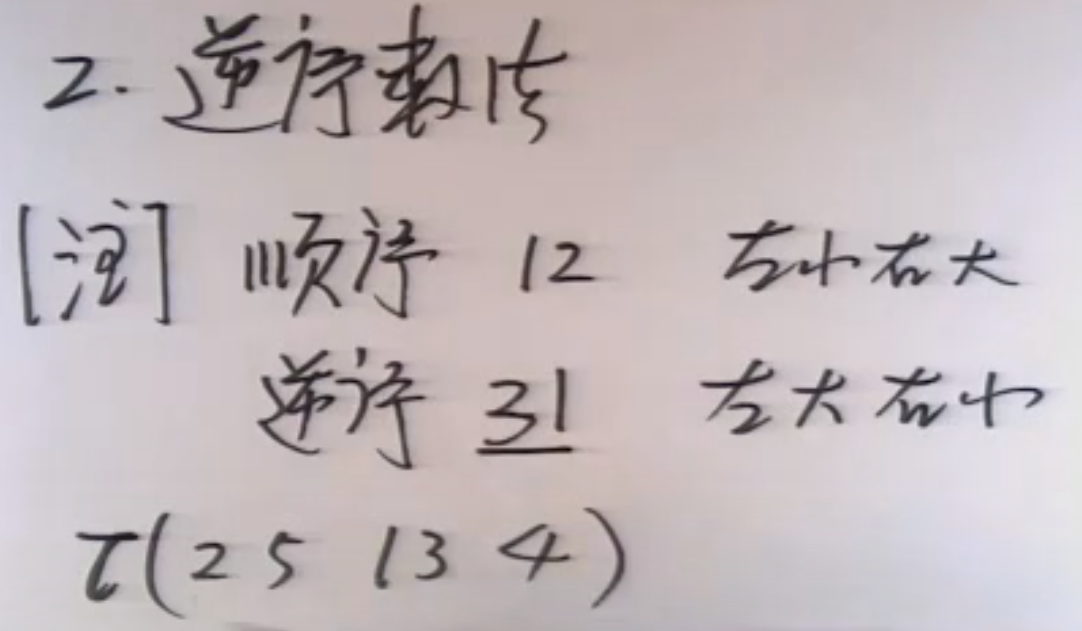 2. 逆序数法
[注] 顺序 12 左小右大
逆序 31 左大右小
τ(2 5 1 3 4)